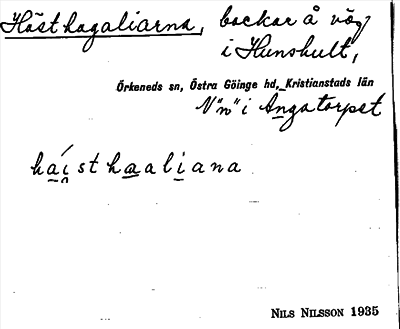 Hästhagaliarna, backar å väg
i Hunshult,
Örkeneds sn, Östra Göinge hd, Kristianstads län
N"n" i Angatorpet
háist haaliana
NILS NILSSON 1935